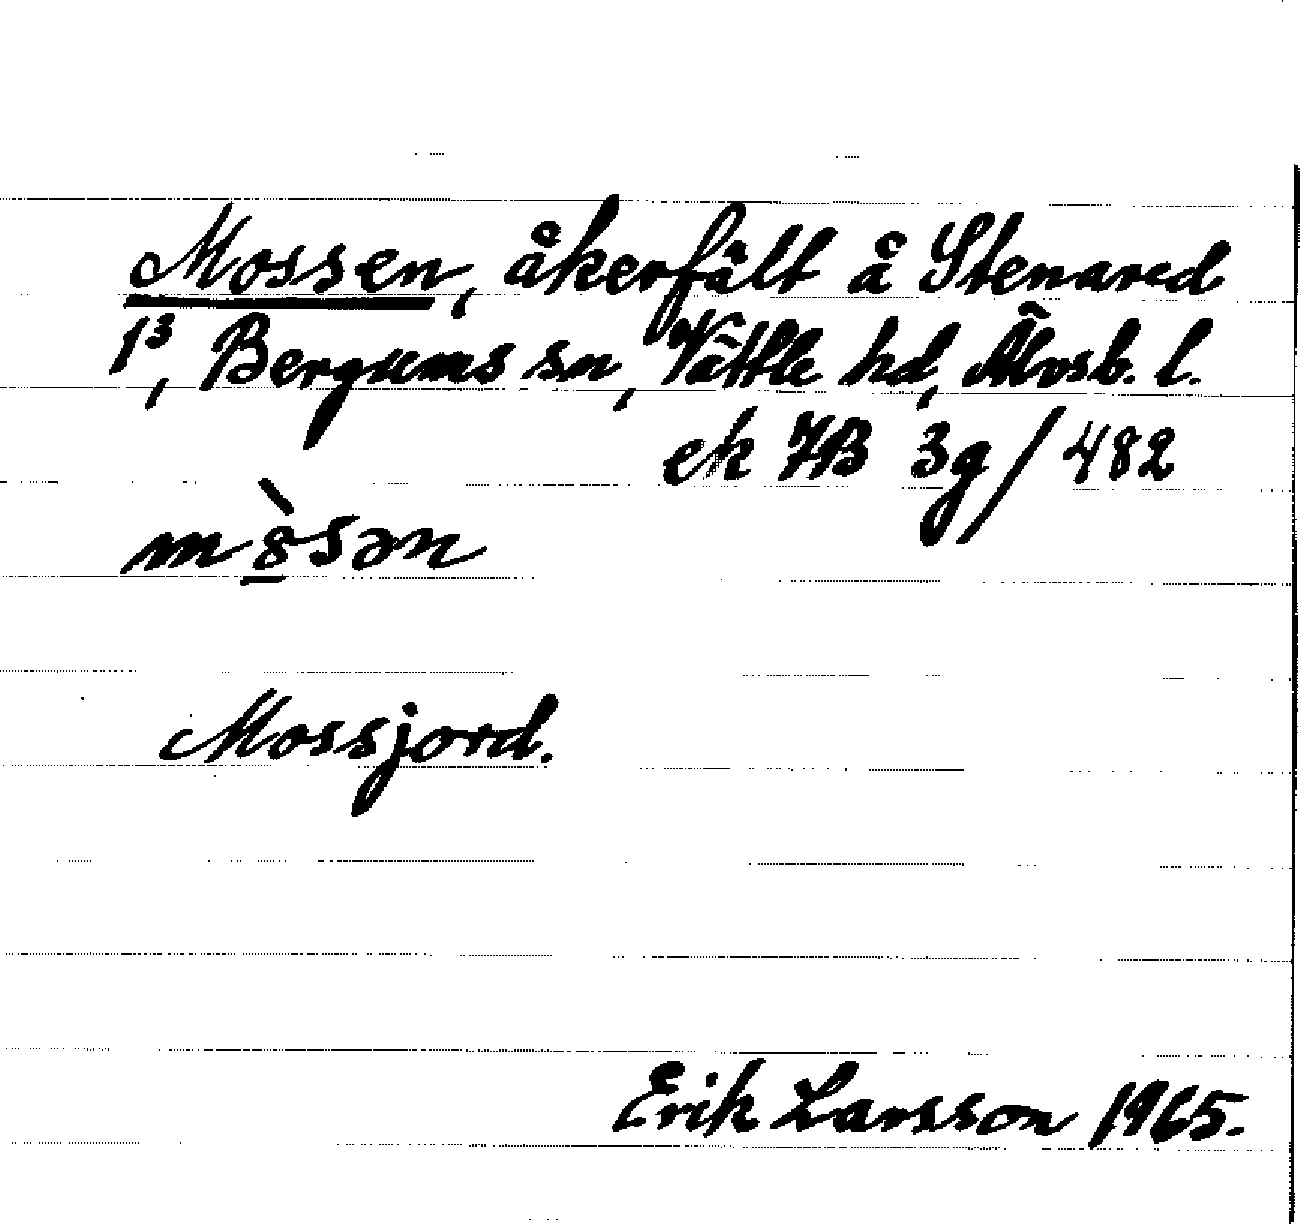 Mossen, åkerfält å Stenared
1³, Bergums sn, Vättle hd, Älvsb. l.
ek 7B 3g/482
m8̱̀sən
Mossjord.
Erik Larsson 1965.